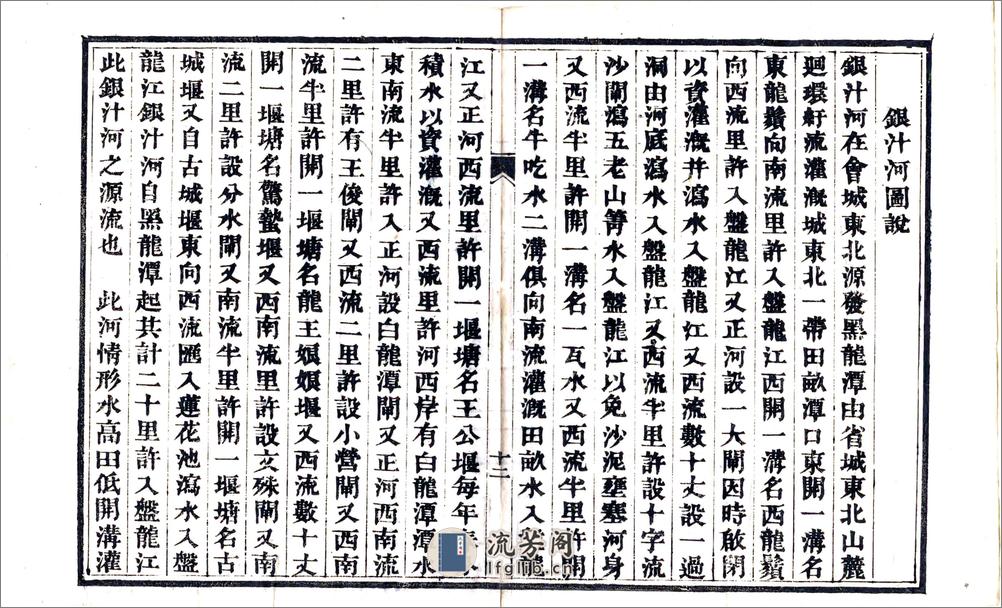 銀汁河圖說
銀汁河在會城東北源發黑龍潭由省城東北山麓
廻環紆流灌溉城東北一帶田畝潭口東開一溝名
東龍鬚向南流里許入盤龍江西開一溝名西龍鬚
向西流里許入盤龍江又正河設一大閘因時啟閉
以資灌溉并瀉水入盤龍江又西流數十丈設一過
洞由河底瀉水入盤龍江又西流半里許設十字流
沙閘瀉五老山箐水入盤龍江以免沙泥壅塞河身
又西流半里許開一溝名一瓦水又西流半里許開
一溝名牛吃水二溝俱向南流灌溉田畝水入盤龍
十二
江又正河西流里許開一堰塘名王公堰每年
積水以資灌溉又西流里許河西岸有白龍潭潭水
東南流半里許入正河設白龍潭閘又正河西南流
二里許有王俊閘又西流二里許設小營閘又西南
流半里許開一堰塘名龍王娘娘堰又西流數十丈
開一堰塘名驚蟄堰又西南流里許設文殊閘又南
流二里許設分水閘又南流半里許開一堰塘名古
城堰又自古城堰東向西流匯入蓮花池瀉水入盤
龍江銀汁河自黑龍潭起其計二十里許入盤龍江
此銀汁河之源流也 此河情形水高田低開溝灌
流芳阁
lfglib.cn